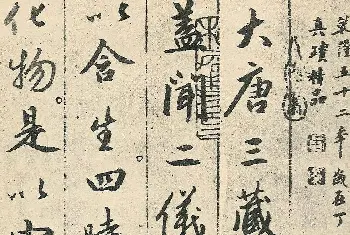 乾隆五十二年歲在丁
真蹟精品
大唐三藏
蓋聞二儀
以含生四時
化物是以